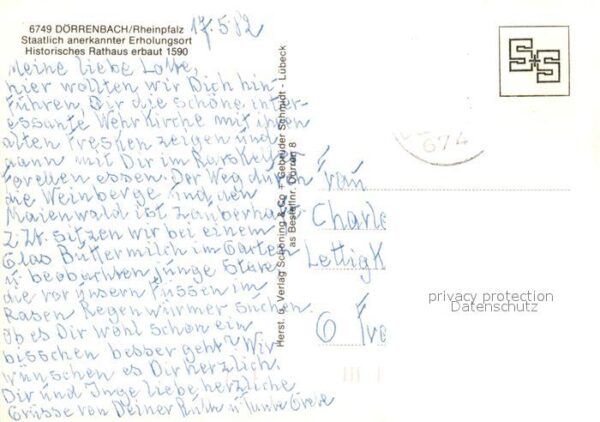 6749 DÖRRENBACH/Rheinpfalz
Staatlich anerkannter Erholungsort
Historisches Rathaus erbaut 1590
17.5.82
Meine liebe Lotte,
hier wollten wir Dich hin
führen, Dir die schöne inter-
essante Wehrkirche mit ihren
alten Fresken zeigen und
dann mit Dir im
Forellen essen. Der Weg durch
die Weinberge und den
Maienwald ist zauberhaft
z. Zt. sitzen wir bei einem
Glas Buttermilch im Garten
u beobachten junge Stare
die vor unsern Füssen im
Rasen Regenwürmer suchen.
Ob es Dir wohl schon ein
bisschen besser geht? Wir
wünschen es Dir herzlich.
Dir und Inge liebe herzliche
Grüsse von Deiner Ruth u Tante Grete
Herst. u. Verlag Schöning & Co + Gebrüder Schmidt - Lübeck
as Bestellnr. Dörren 8
S+S
674
Frau
Charl
Lettig
6 Fr
privacy protection
Datenschutz